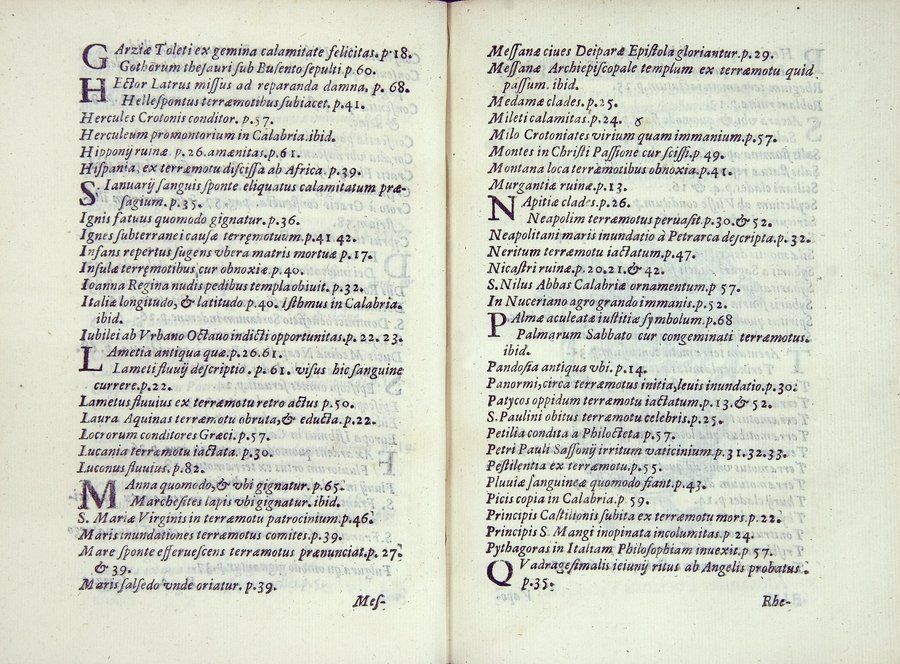 GArziæ Toleti ex gemina calamitate felicitas. p 18.
Gothorum thesauri sub Busento sepulti. p. 60.
HEctor Latrus missus ad reparanda damna. p. 68.
Hellespontus terræmotibus subiacet. p. 41.
Hercules Crotonis conditor. p. 57.
Herculeum promontorium in Calabria. ibid.
Hipponij ruinæ. p. 26. amænitas. p. 61.
Hispania, ex terræmotu discissa ab Africa. p. 39.
S. Ianuarij sanguis sponte eliquatus calamitatum præ-
sagium. p. 35.
Ignis fatuus quomodo gignatur. p. 36.
Ignes subterranei causæ terręmotuum. p. 41 42.
Infans repertus sugens vbera matris mortuæ p. 17.
Insulæ terręmotibus cur obnoxiæ. p. 40.
Ioanna Regina nudis pedibus templa obiuit. p. 32.
Italiæ longitudo, & latitudo. p. 40. Isthmus in Calabria.
ibid.
Iubilei ab Vrbano Octauo indicti opportunitas. p. 22. 23.
LAmetia antiqua quæ. p. 26. 61.
Lameti fluuij descriptio. p. 61. visus hic sanguine
currere. p. 22.
Lametus fluuius ex terræmotu retro actus p. 50.
Laura Aquinas terræmotu obruta, & educta. p. 22.
Locrorum conditores Græci. p. 57.
Lucania terræmotu iactata. p. 30.
Luconus fluuius. p. 82.
MAnna quomodo, & vbi gignatur. p. 65.
Marchesites lapis vbi gignatur. ibid.
S. Mariæ Virginis in terræmotu patrocinium. p. 46.
Maris inundationes terræmotus comites. p. 39.
Mare sponte efferuescens terræmotus prænunciat. p. 27.
& 39.
Maris salsedo vnde oriatur. p. 39.
Mes-
Messanæ ciues Deiparæ Epistola gloriantur. p. 29.
Messanæ Archiepiscopale templum ex terræmotu quid
passum. ibid.
Medamæ clades. p. 25.
Mileti calamitas. p. 24.
Milo Crotoniates virium quam immanium. p. 57.
Montes in Christi Passione cur scissi. p. 49.
Montana loca terræmotibus obnoxia. p. 41.
Murgantiæ ruinæ. p. 13.
NApitiæ clades. p. 26.
Neapolim terræmotus peruasit. p. 30. & 52.
Neapolitani maris inundatio à Petrarca descripta. p. 32.
Neritum terræmotu iactatum. p. 47.
Nicastri ruinæ. p. 20. 21. & 42.
S. Nilus Abbas Calabriæ ornamentum. p 57.
In Nuceriano agro grando immanis. p. 52.
PAlmæ aculeatæ iustitiæ symbolum. p. 68
Palmarum Sabbato cur congeminati terræmotus.
ibid.
Pandosia antiqua vbi. p. 14.
Panormi, circa terræmotus initia, leuis inundatio. p. 30.
Patycos oppidum terræmotu iactatum. p. 13. & 52.
S. Paulini obitus terræmotu celebris. p. 25.
Petilia condita a Philocteta. p. 57.
Petri Pauli Sassonij irritum vaticinium. p. 31. 32. 33.
Pestilentia ex terræmotu. p. 55.
Pluuiæ sanguineæ quomodo fiant. p. 43.
Picis copia in Calabria. p 59.
Principis Castilionis subita ex terræmotu mors. p. 22.
Principis S. Mangi inopinata incolumitas. p 24.
Pythagoras in Italiam Philosophiam inuexit. p. 57.
QVadragesimalis ieiunij ritus ab Angelis probatus.
p. 35.
Rhe-